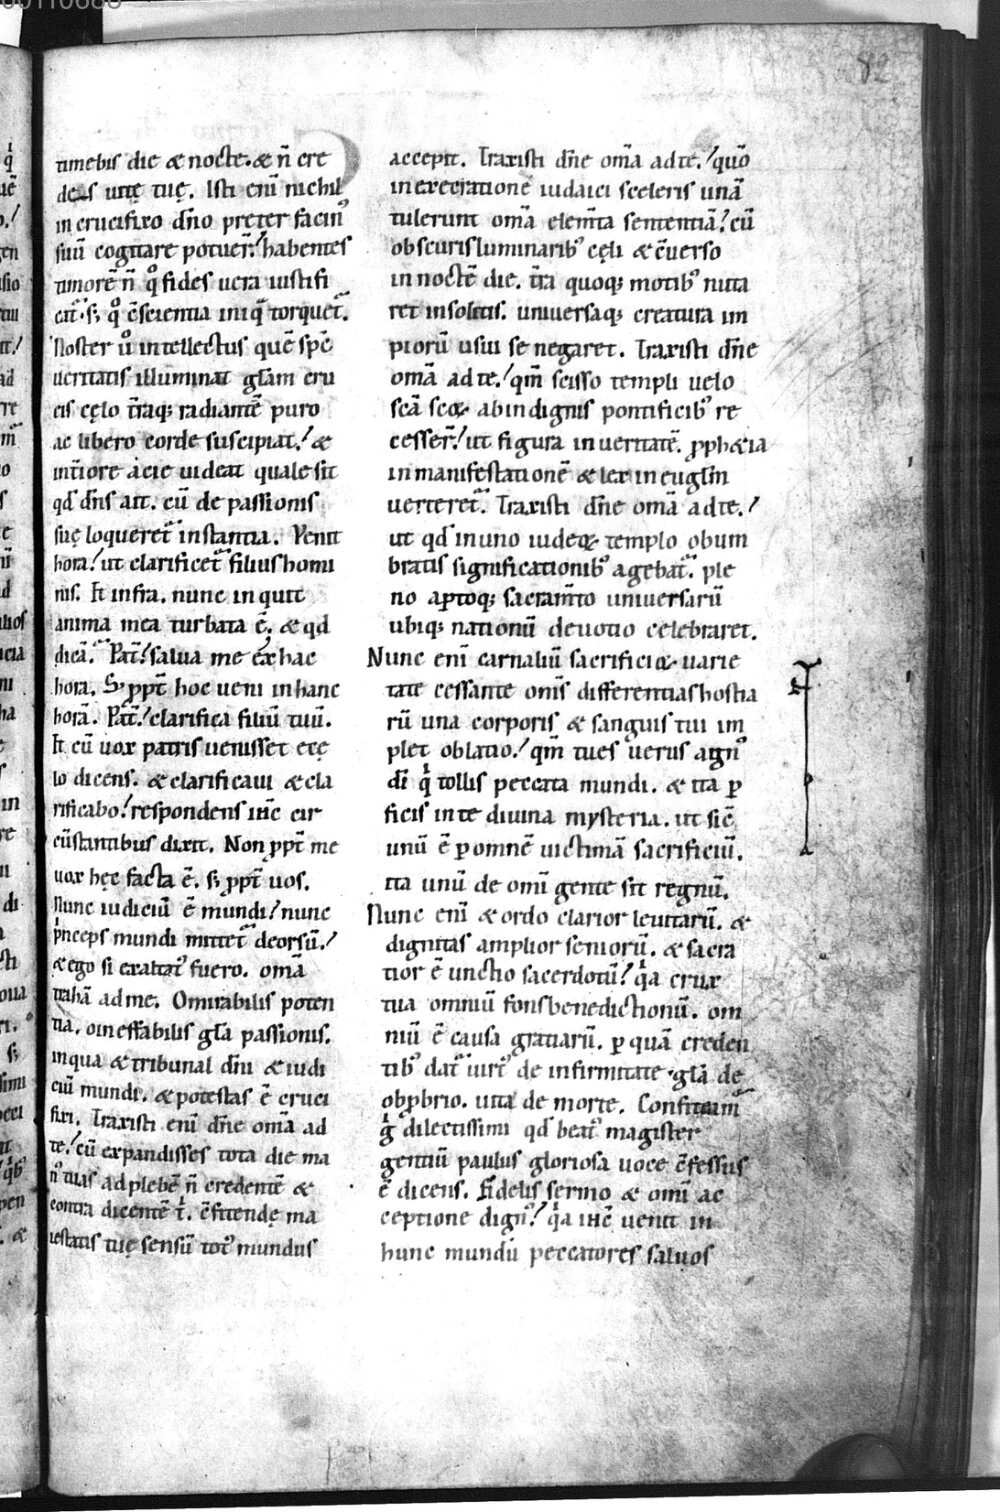 82
timebis die & nocte. & n̄ cre
des uitę tuę. Isti eni̅ nichil
in crucifixo dn̄o pręter facin᷒
suū cogitare potuer̄! habentes
timorē n̄ qͦ fides uera iustifi
cat᷑. s; qͦ c̄scientia iniq̄ torquet᷑.
Noster ū intellectus quē sp̄c
ueritatis illuminat gl̄am cru
cis cęlo t̄raq; radiantē puro
ac libero corde suscipiat! &
int̄iore acie uideat quale sit
qd̄ dn̄s ait. cū de passionis
suę loqueret᷑ instantia. Venit
hora! ut clarificet᷑ filius homi
nis. Et infra. nunc inquit
anima mea turbata ē. & qd
dicā. Pat̄! salua me ex hac
hora. S; ꝓpt̄ hoc ueni in hanc
horā. Pat̄! clarifica filiū tuū.
Et cū uox patris uenisset ecę
lo dicens. & clarificaui & cla
rificabo! respondens ihc̄ cir
cūstantibus dixit. Non ꝓpt̄ me
uox hęc facta ē. s; ꝓpt̄ uos.
Nunc iudiciū ē mundi! nunc
p̍nceps mundi mittet᷑ deorsū!
& ego si exaltat᷒ fuero. omā
trahā ad me. O mirabilis poten
tia. o ineffabilis gl̄a passionis.
in qua & tribunal dn̄i & iudi
ciū mundi. & potestas ē cruci
fixi. Traxisti eni̅ dn̄e omā ad
te! cū expandisses tota die ma
n᷒ tuas ad plebē n̄ credentē &
contra dicentē t̍. c̄fitendę ma
iestatis tuę sensū tot᷒ mundus
accepit. Traxisti dn̄e omā ad te! quō
in execratione iudaici sceleris unā
tulerunt omā elem̄ta sententiā! cū
obscuris luminarib᷒ cęli & c̄uerso
in noctē die. t̄ra quoq; motib᷒ nuta
ret insolitis. uniuersaq; creatura im
piorū usui se negaret. Traxisti dn̄e
omā ad te! qm̄ scisso templi uelo
sc̄a sc̄oꝝ ab indignis pontificib᷒ re
cesser̄! ut figura in ueritatē. ꝓph&ia
in manifestationē & lex in euglīm
uerteret᷑. Traxisti dn̄e omā ad te!
ut qd̄ in uno iudeoꝝ templo obum
bratis significationib᷒ agebat᷑. ple
no aꝑtoq; sacram̄to uniuersarū
ubiq; nationū deuotio celebraret.
Nunc eni̅ carnaliū sacrificioꝝ uarie
tate cessante omīs differentias hostia
rū una corporis & sanguis tui im
plet oblatio! qm̄ tu es uerus agn᷒
dī q̍ tollis peccata mundi. & ita ꝑ
ficis in te diuina mysteria. ut sic̄
unū ē ꝑ omnē uictimā sacrificiū.
ita unū de omī gente sit regnū.
Nunc eni̅ & ordo clarior leuitarū. &
dignitas amplior seniorū. & sacra
tior ē unctio sacerdotū! q̍a crux
tua omniū fons benedictionū. om
niū ē causa gratiarū. ꝑ quā creden
tib᷒ dat᷑ uirt᷒ de infirmitate. gl̄a de
obꝓbrio. uita de morte. Confiteam᷑
g̍ dilectissimi qd̄ beat᷒ magister
gentiū paulus gloriosa uoce c̄fessus
ē dicens. Fidelis sermo & omī ac
ceptione dign᷒! q̍a ihc̄ uenit in
hunc mundū peccatores saluos